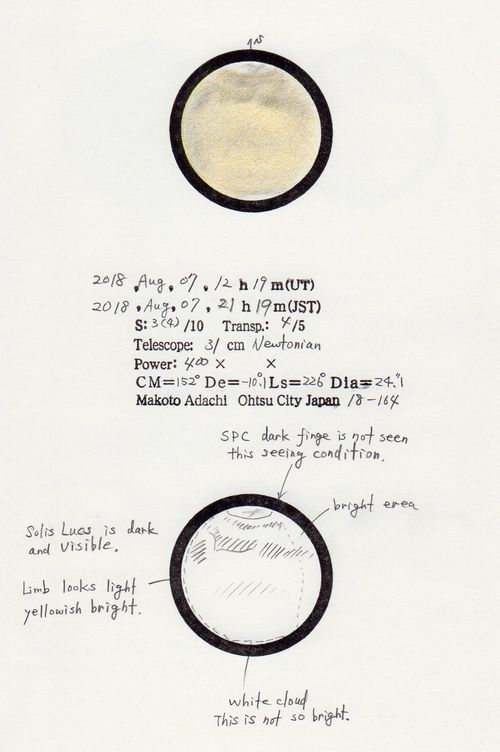 N
2018, Aug, 07, 12 h 19 m(UT)
2018, Aug, 07, 21 h 19 m(JST)
S: 3(4) /10 Transp.: 4/5
Telescope: 31 cm Newtonian
Power: 400 × ×
CM=152° De=-10.°1 Ls=226° Dia=24."1
Makoto Adachi Ohtsu City Japan 18-164
SPC dark finge is not seen
this seeing condition.
bright erea
Solis Lucs is dark
and visible.
Limb looks light
yellowish bright.
white cloud
This is not so bright.